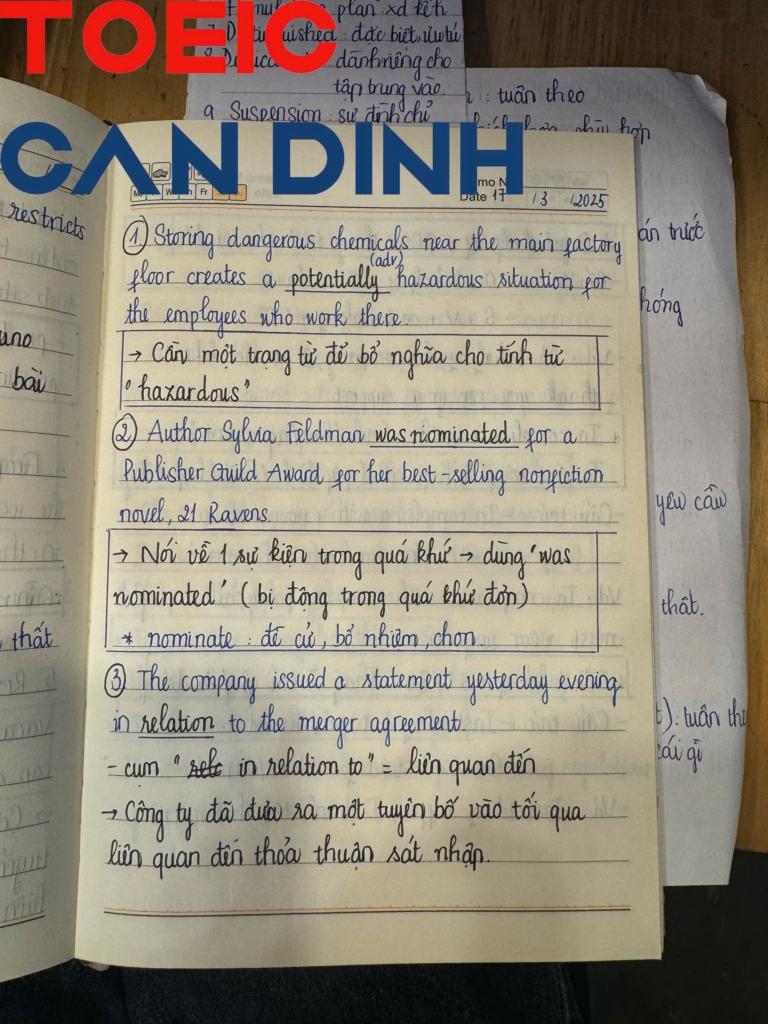 TOEIC
CAN DINH
plan: xd kế h
Distinguished: đặc biệt, ưu tú
dành riêng cho
tập trung vào.
9 Suspension: sự đình chỉ
: tuân theo
hợp
restricts
bài
thất
án trước
yêu cầu
thất.
t): tuân the
cái gì
Fr
Date 17 / 3 /2025
① Storing dangerous chemicals near the main factory
(adv)
floor creates a potentially hazardous situation for
the employees who work there.
→ Cần một trạng từ để bổ nghĩa cho tính từ
"hazardous"
② Author Sylvia Feldman was nominated for a
Publisher Guild Award for her best-selling nonfiction
novel, 21 Ravens.
→ Nói về 1 sự kiện trong quá khứ → dùng 'was
nominated' (bị động trong quá khứ đơn)
* nominate: đề cử, bổ nhiệm, chọn
③ The company issued a statement yesterday evening
in relation to the merger agreement.
- cụm " in relation to" = liên quan đến
→ Công ty đã đưa ra một tuyên bố vào tối qua
liên quan đến thỏa thuận sát nhập.